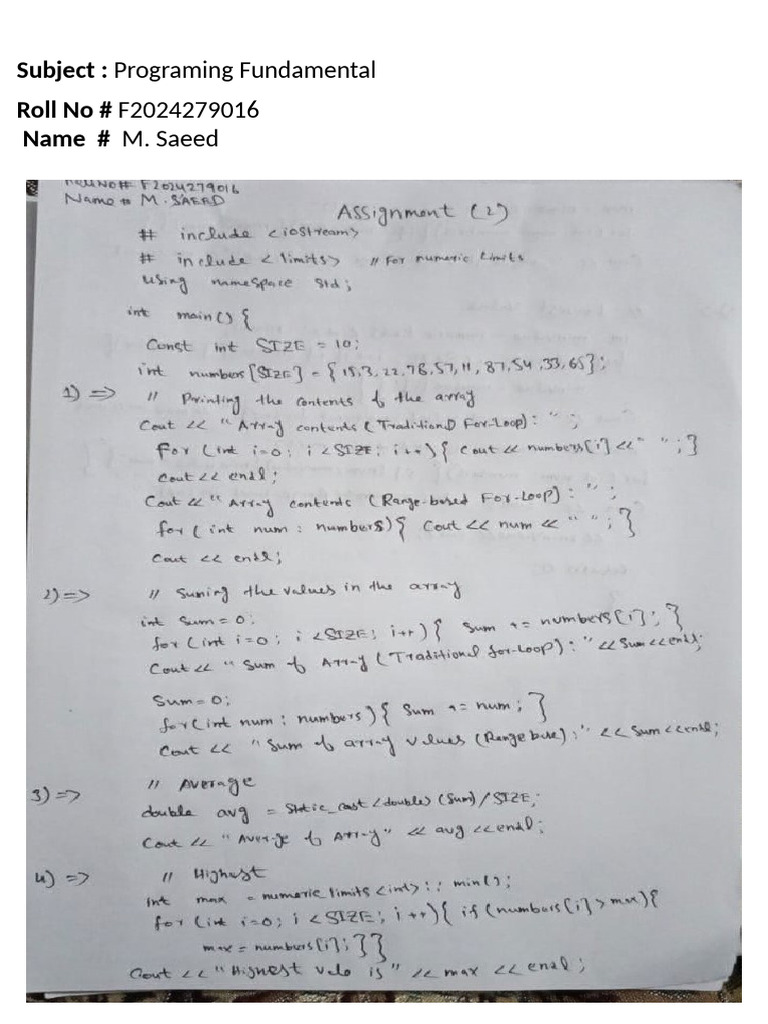 Subject : Programing Fundamental
Roll No # F2024279016
Name # M. Saeed
Roll No# F2024279016
Name # M. SAEED
Assignment (2)
# include <iostream>
# include < limits> // For numeric limits
using namespace std;
int main() {
Const int SIZE = 10;
int numbers[SIZE] = {15,3,22,78,57,11,87,54,33,65};
1) => // Printing the contents of the array
Cout << "Array contents (Traditional For-Loop): " ;
For (int i=0; i <SIZE; i++){ Cout << numbers[i] <<" ";}
Cout << endl;
Cout << "Array contents (Range-based For-Loop): " ;
for (int num : numbers){ Cout << num << " "; }
Cout << endl;
2) => // Suming the values in the array
int sum = 0;
for (int i=0; i <SIZE; i++){ Sum += numbers[i]; }
Cout << " Sum of Array (Traditional for-loop): " << Sum <<endl;
Sum = 0;
for(int num : numbers){ Sum += num; }
Cout << "Sum of array values (Range base):" << Sum <<endl;
3) => // Average
double avg = Static_cast <double> (Sum) / SIZE;
Cout << " Average of Array" << avg <<endl;
4) => // Highest
int max = numeric limits <int> :: min();
for (int i=0; i <SIZE; i++){ if (numbers[i] > max){
max = numbers[i]; }}
Cout << "Highest Valo is" << max << endl;